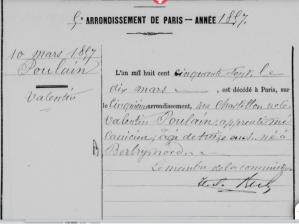 5e ARRONDISSEMENT DE PARIS — ANNÉE 1857.
10 mars 1857
Poulain
Valentin
L'an mil huit cent cinquante sept, le
dix mars est décédé à Paris, sur le
cinquième arrondissement,
Valentin Poulain, apprenti mé
canicien, âgé de treize ans né à
Le membre de la commission